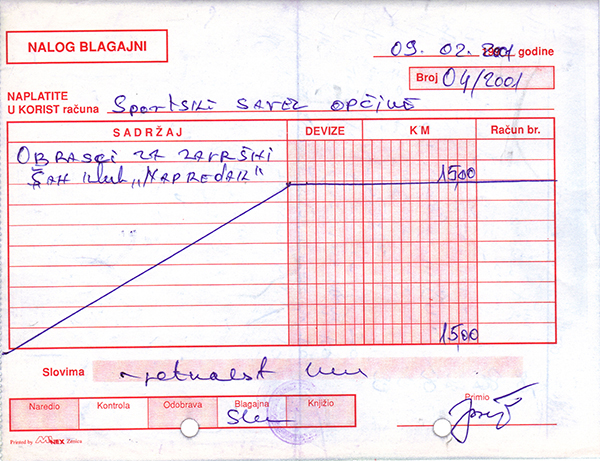 NALOG BLAGAJNI
09. 02. 2001 godine
Broj 04/2001
NAPLATITE
U KORIST računa Sportski savez općine
SADRŽAJ DEVIZE KM Račun br.
OBRASCI ZA ZAVRŠNI
ŠAH klub „NAPREDAK" 15,00
15,00
Slovima petnaest km
Naredio Kontrola Odobrava Blagajna Knjižio Primio
Printed by MINEX Zenica